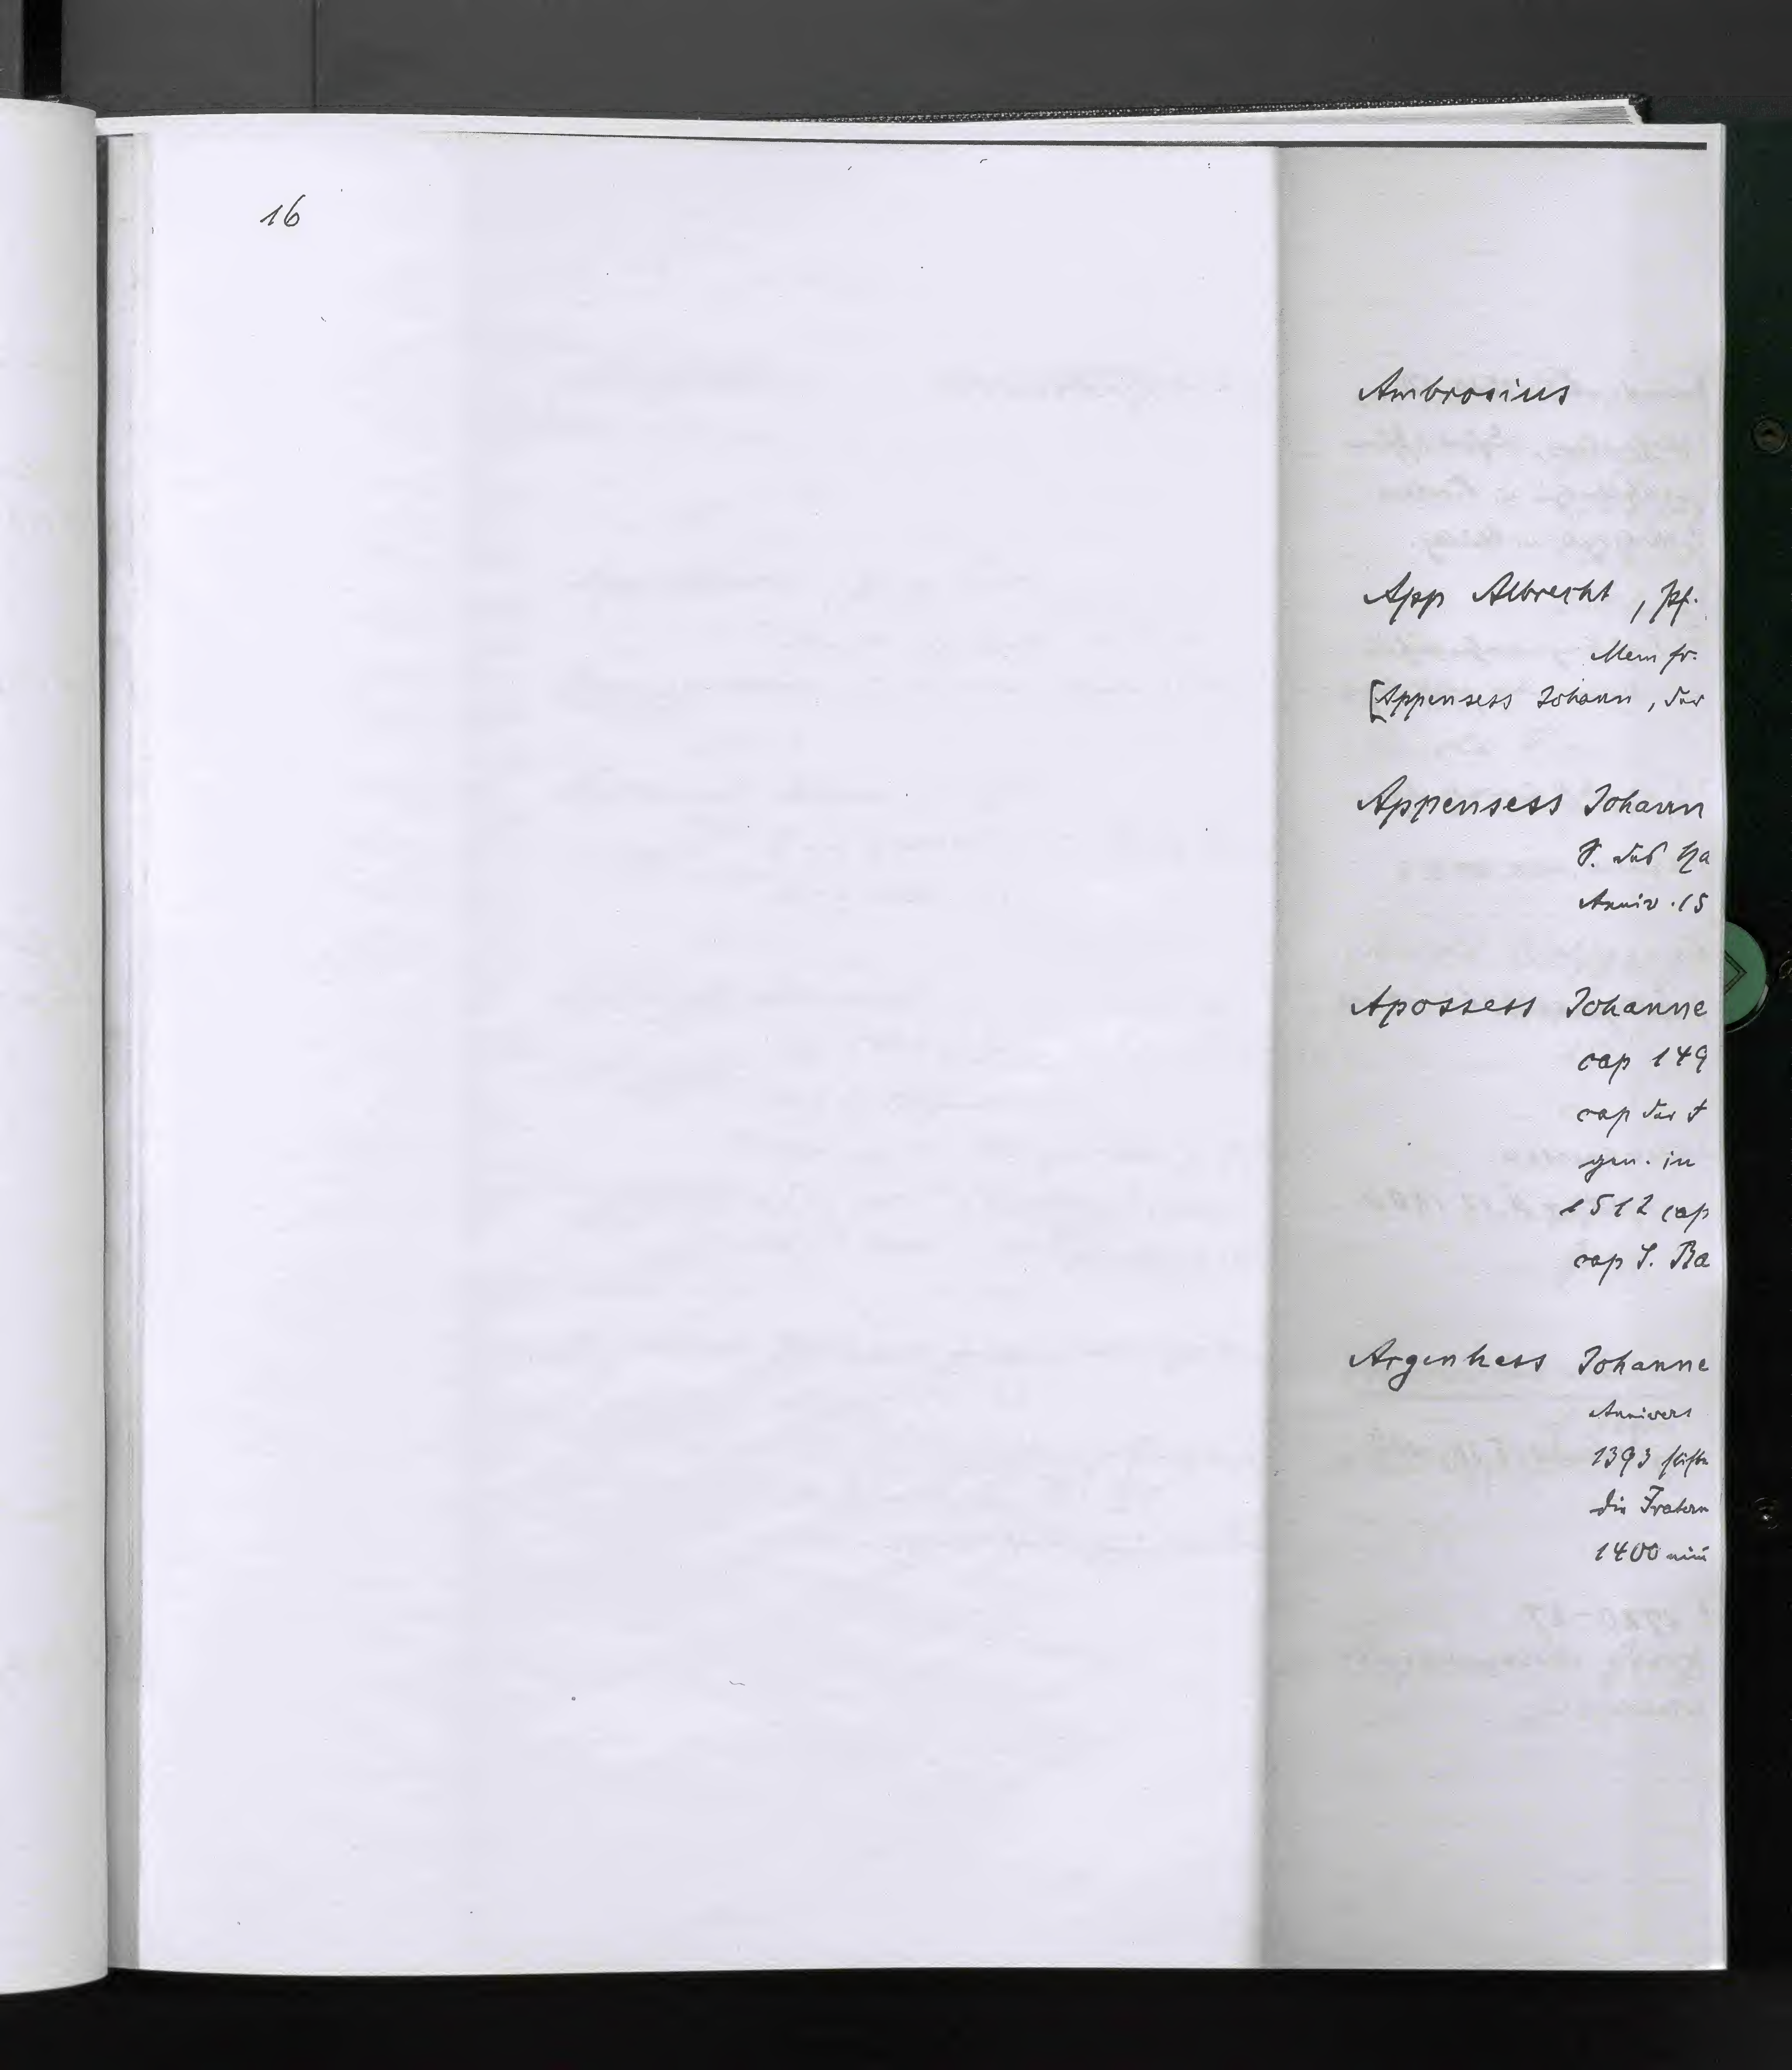 16
Ambrosius
App Albrecht, pf.
Mem fr.
[Appensess Johann, der
Appensess Johann
S. des Ha
Anniv. 15
Apossess Johanne
cap 149
cap der
gen. in
1512 cap
cap S. Ba
Argenhess Johanne
Annivers
1393
die Fratern
1400